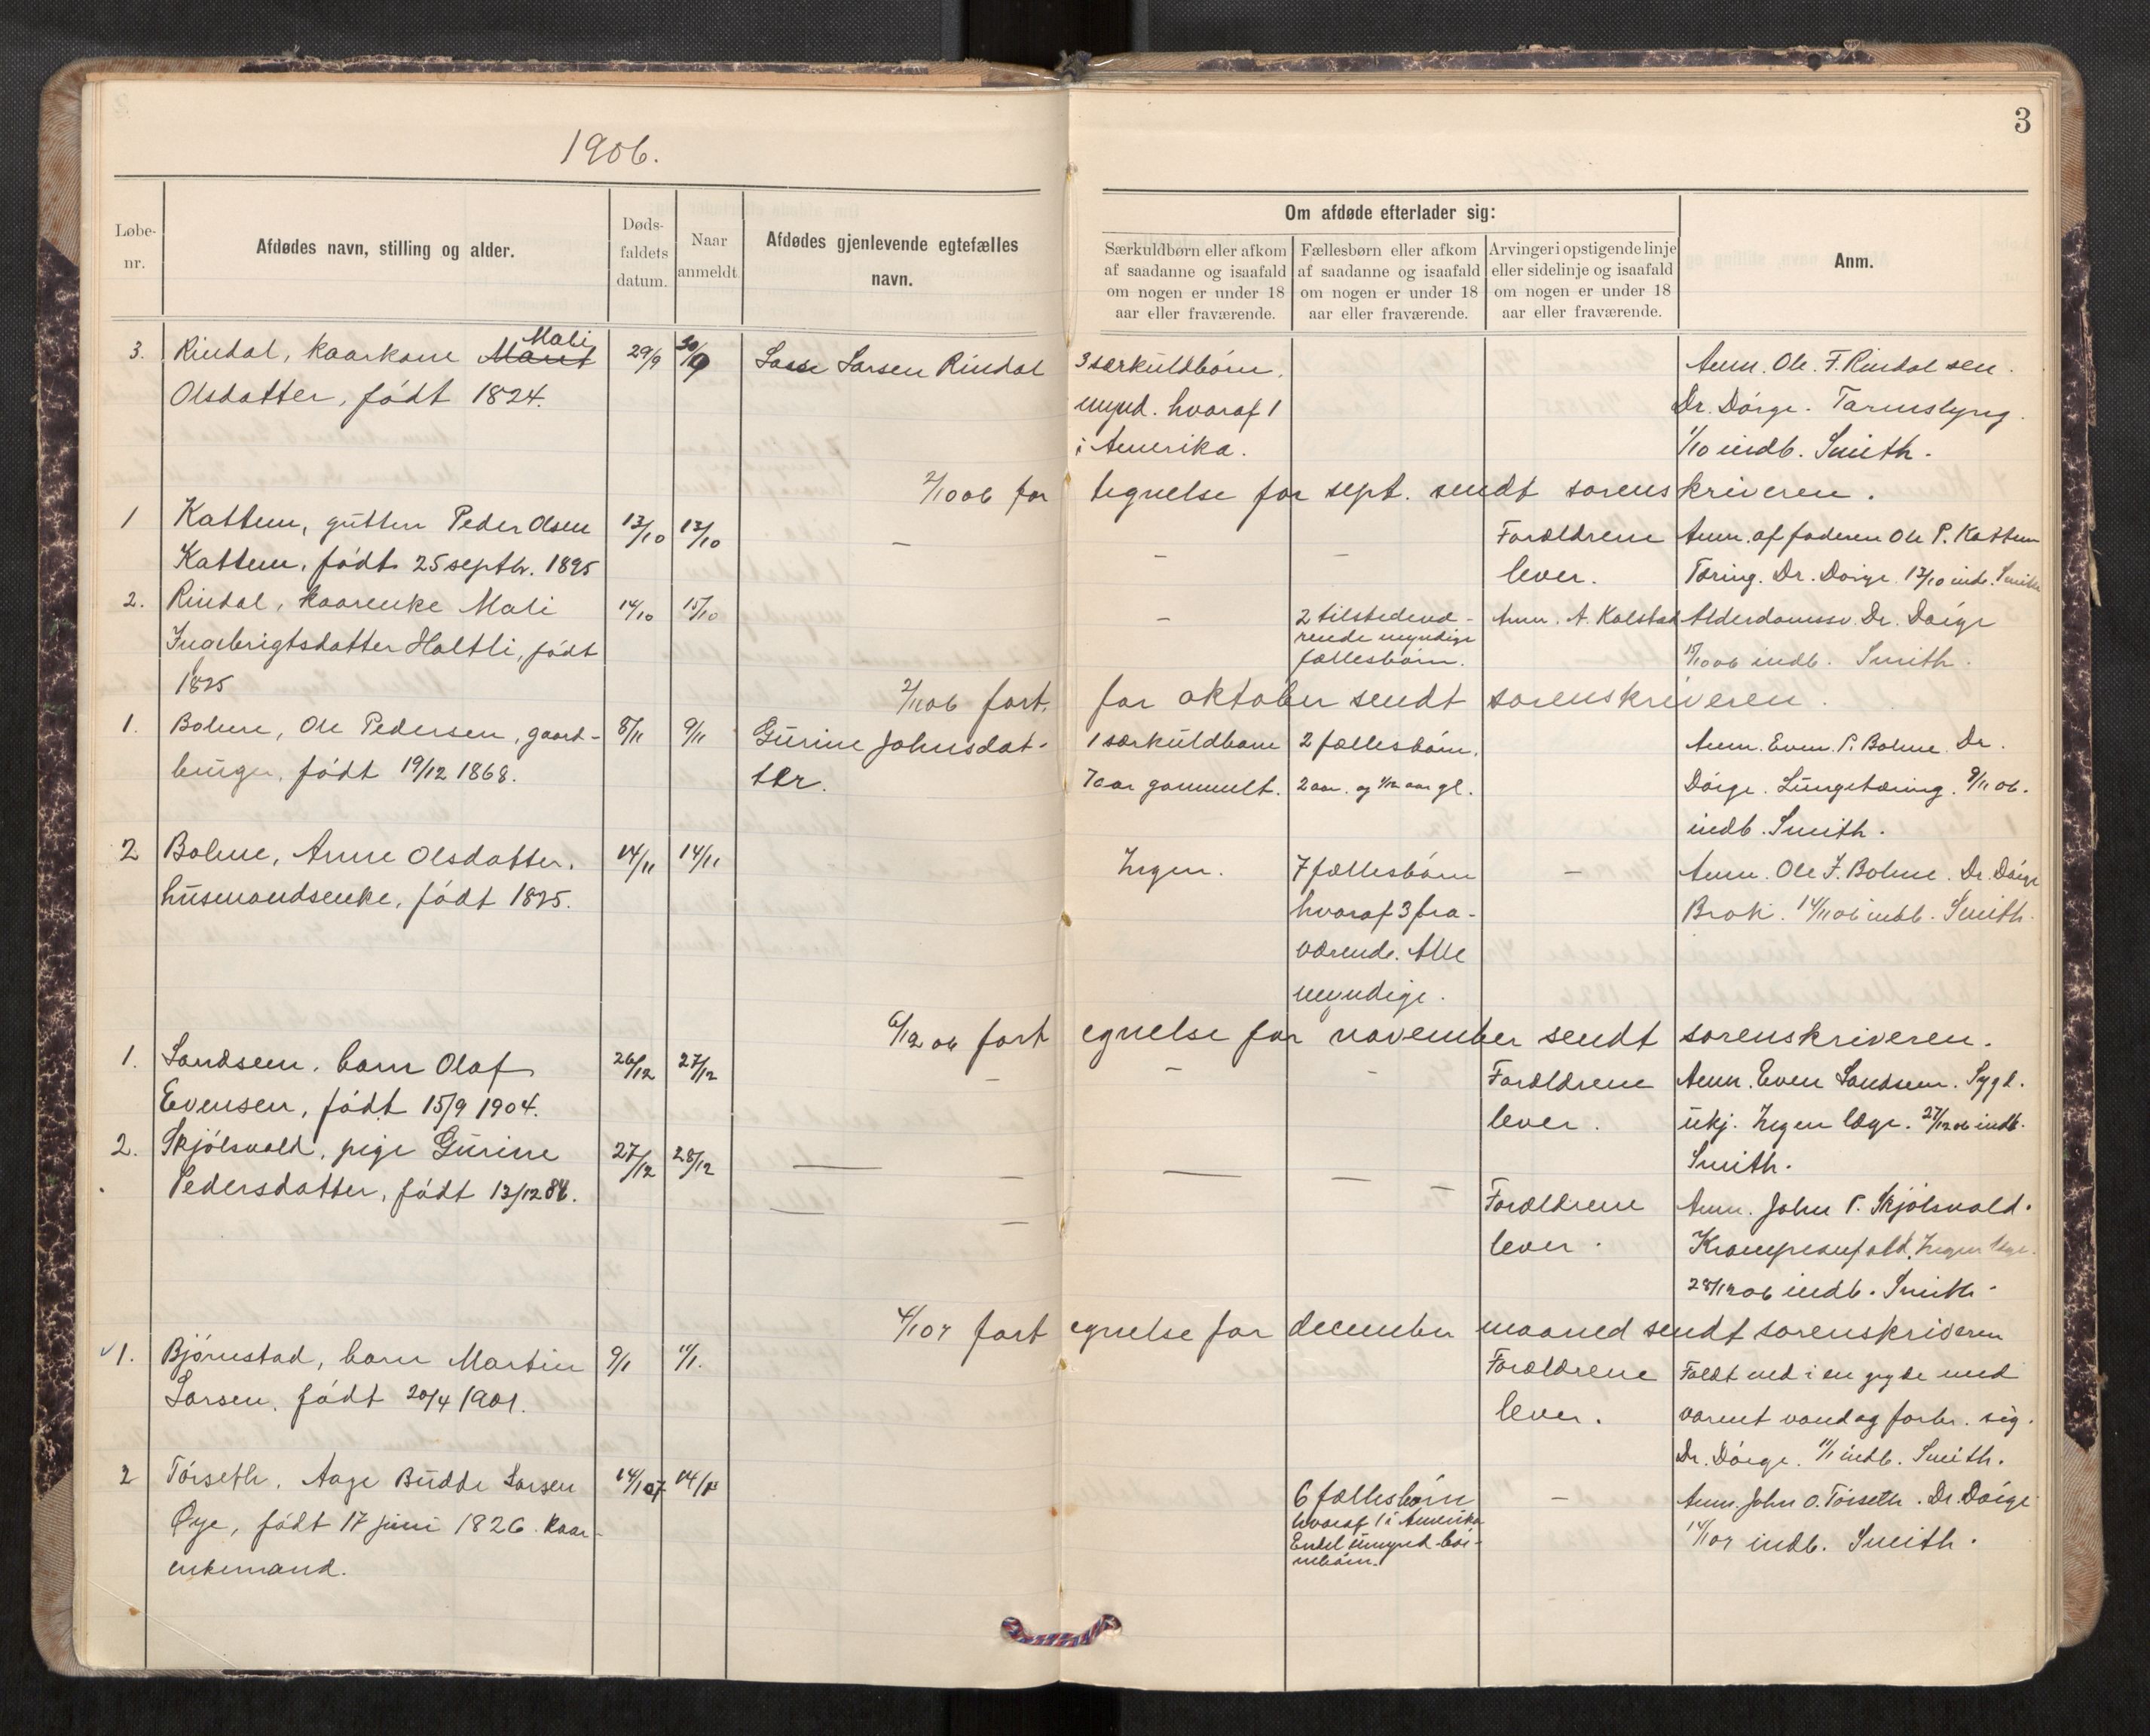 3
1906.
Løbe-nr.
Afdødes navn, stilling og alder.
Døds-faldets datum.
Naar anmeldt.
Afdødes gjenlevende egtefælles navn.
Om afdøde efterlader sig:
Særkuldbørn eller afkom af saadanne og isaafald om nogen er under 18 aar eller fraværende.
Fællesbørn eller afkom af saadanne og isaafald om nogen er under 18 aar eller fraværende.
Arvinger i opstigende linje eller sidelinje og isaafald om nogen er under 18 aar eller fraværende.
Anm.
3. Rindal, kaarkone Maret Mali 29/9 30/9 Lasse Larsen Rindal 3 særkuldbørn, Anm. Ole F. Rindal sen.
Olsdatter, født 1824. mynd. hvoraf 1 Dr. Dørge. Tarmslyng.
i Amerika. 1/10 indb. Smith.
2/10 06 fortegnelse for sept. sendt sorenskriveren.
1 Kattem, gutten Peder Olsen 13/10 13/10 – – – Forældrene Anm. af faderen Ole P. Kattem
Kattem, født 25 septbr. 1895 lever. Tæring. Dr. Dørge. 13/10 indb. Smith
2. Rindal, kaarenke Mali 14/10 15/10 – 2 tilstedeværende myndige fællesbørn. Anm. A. Kalstad Alderdomssv. Dr. Dørge
Ingebrigtsdatter Holtli, født 15/10 06 indb. Smith.
1825
2/11 06 fort. for oktober sendt sorenskriveren.
1. Bolme, Ole Pedersen, gaard- 8/11 9/11 Gurine Johnsdat- 1 særkuldbarn 2 fællesbørn, Anm. Even P. Bolme. Dr.
bruger, født 19/12 1868. ter. 7 aar gammelt. 2 aar. og 1/12 aar gl. Dørge. Lungetæring. 9/11 06.
indb. Smith.
2 Bolme, Anne Olsdatter, 14/11 14/11 Ingen. 7 fællesbørn – Anm. Ole J. Bolme. Dr. Dørge
husmandsenke, født 1825. hvoraf 3 fra- Brok. 14/11 06 indb. Smith.
værende. Alle
myndige.
6/12 06 fortegnelse for november sendt sorenskriveren.
1. Landsem, barn Olaf 26/12 27/12 – – – Forældrene Anm. Even Landsem. Sygd.
Evensen, født 15/9 1904. lever. ukj. Ingen læge. 27/12 06 indb.
Smith.
2. Skjølsvold, pige Gurine 27/12 28/12 – – – –
Pedersdatter, født 13/12 88. Forældrene Anm. John P. Skjølsvold.
lever. Krampeanfald. Ingen læge.
28/12 06 indb. Smith.
4/1 07 fortegnelse for december maaned sendt sorenskriveren
1. Bjørnstad, barn Martin 9/1 11/1. Forældrene Faldt ned i en gryde med
Larsen, født 20/4 1901. lever. varmt vand og forbr. sig.
Dr. Dørge. 11/1 indb. Smith.
2 Tørseth, Aage Budde Larsen 14/1 07 14/1 6 fællesbørn – Anm. John O. Tørseth. Dr. Dørge
Øye, født 17 juni 1826. Kaar- hvoraf 1 i Amerika 14/1 07 indb. Smith.
enkemand. Endel umynd. bør-
nebørn.